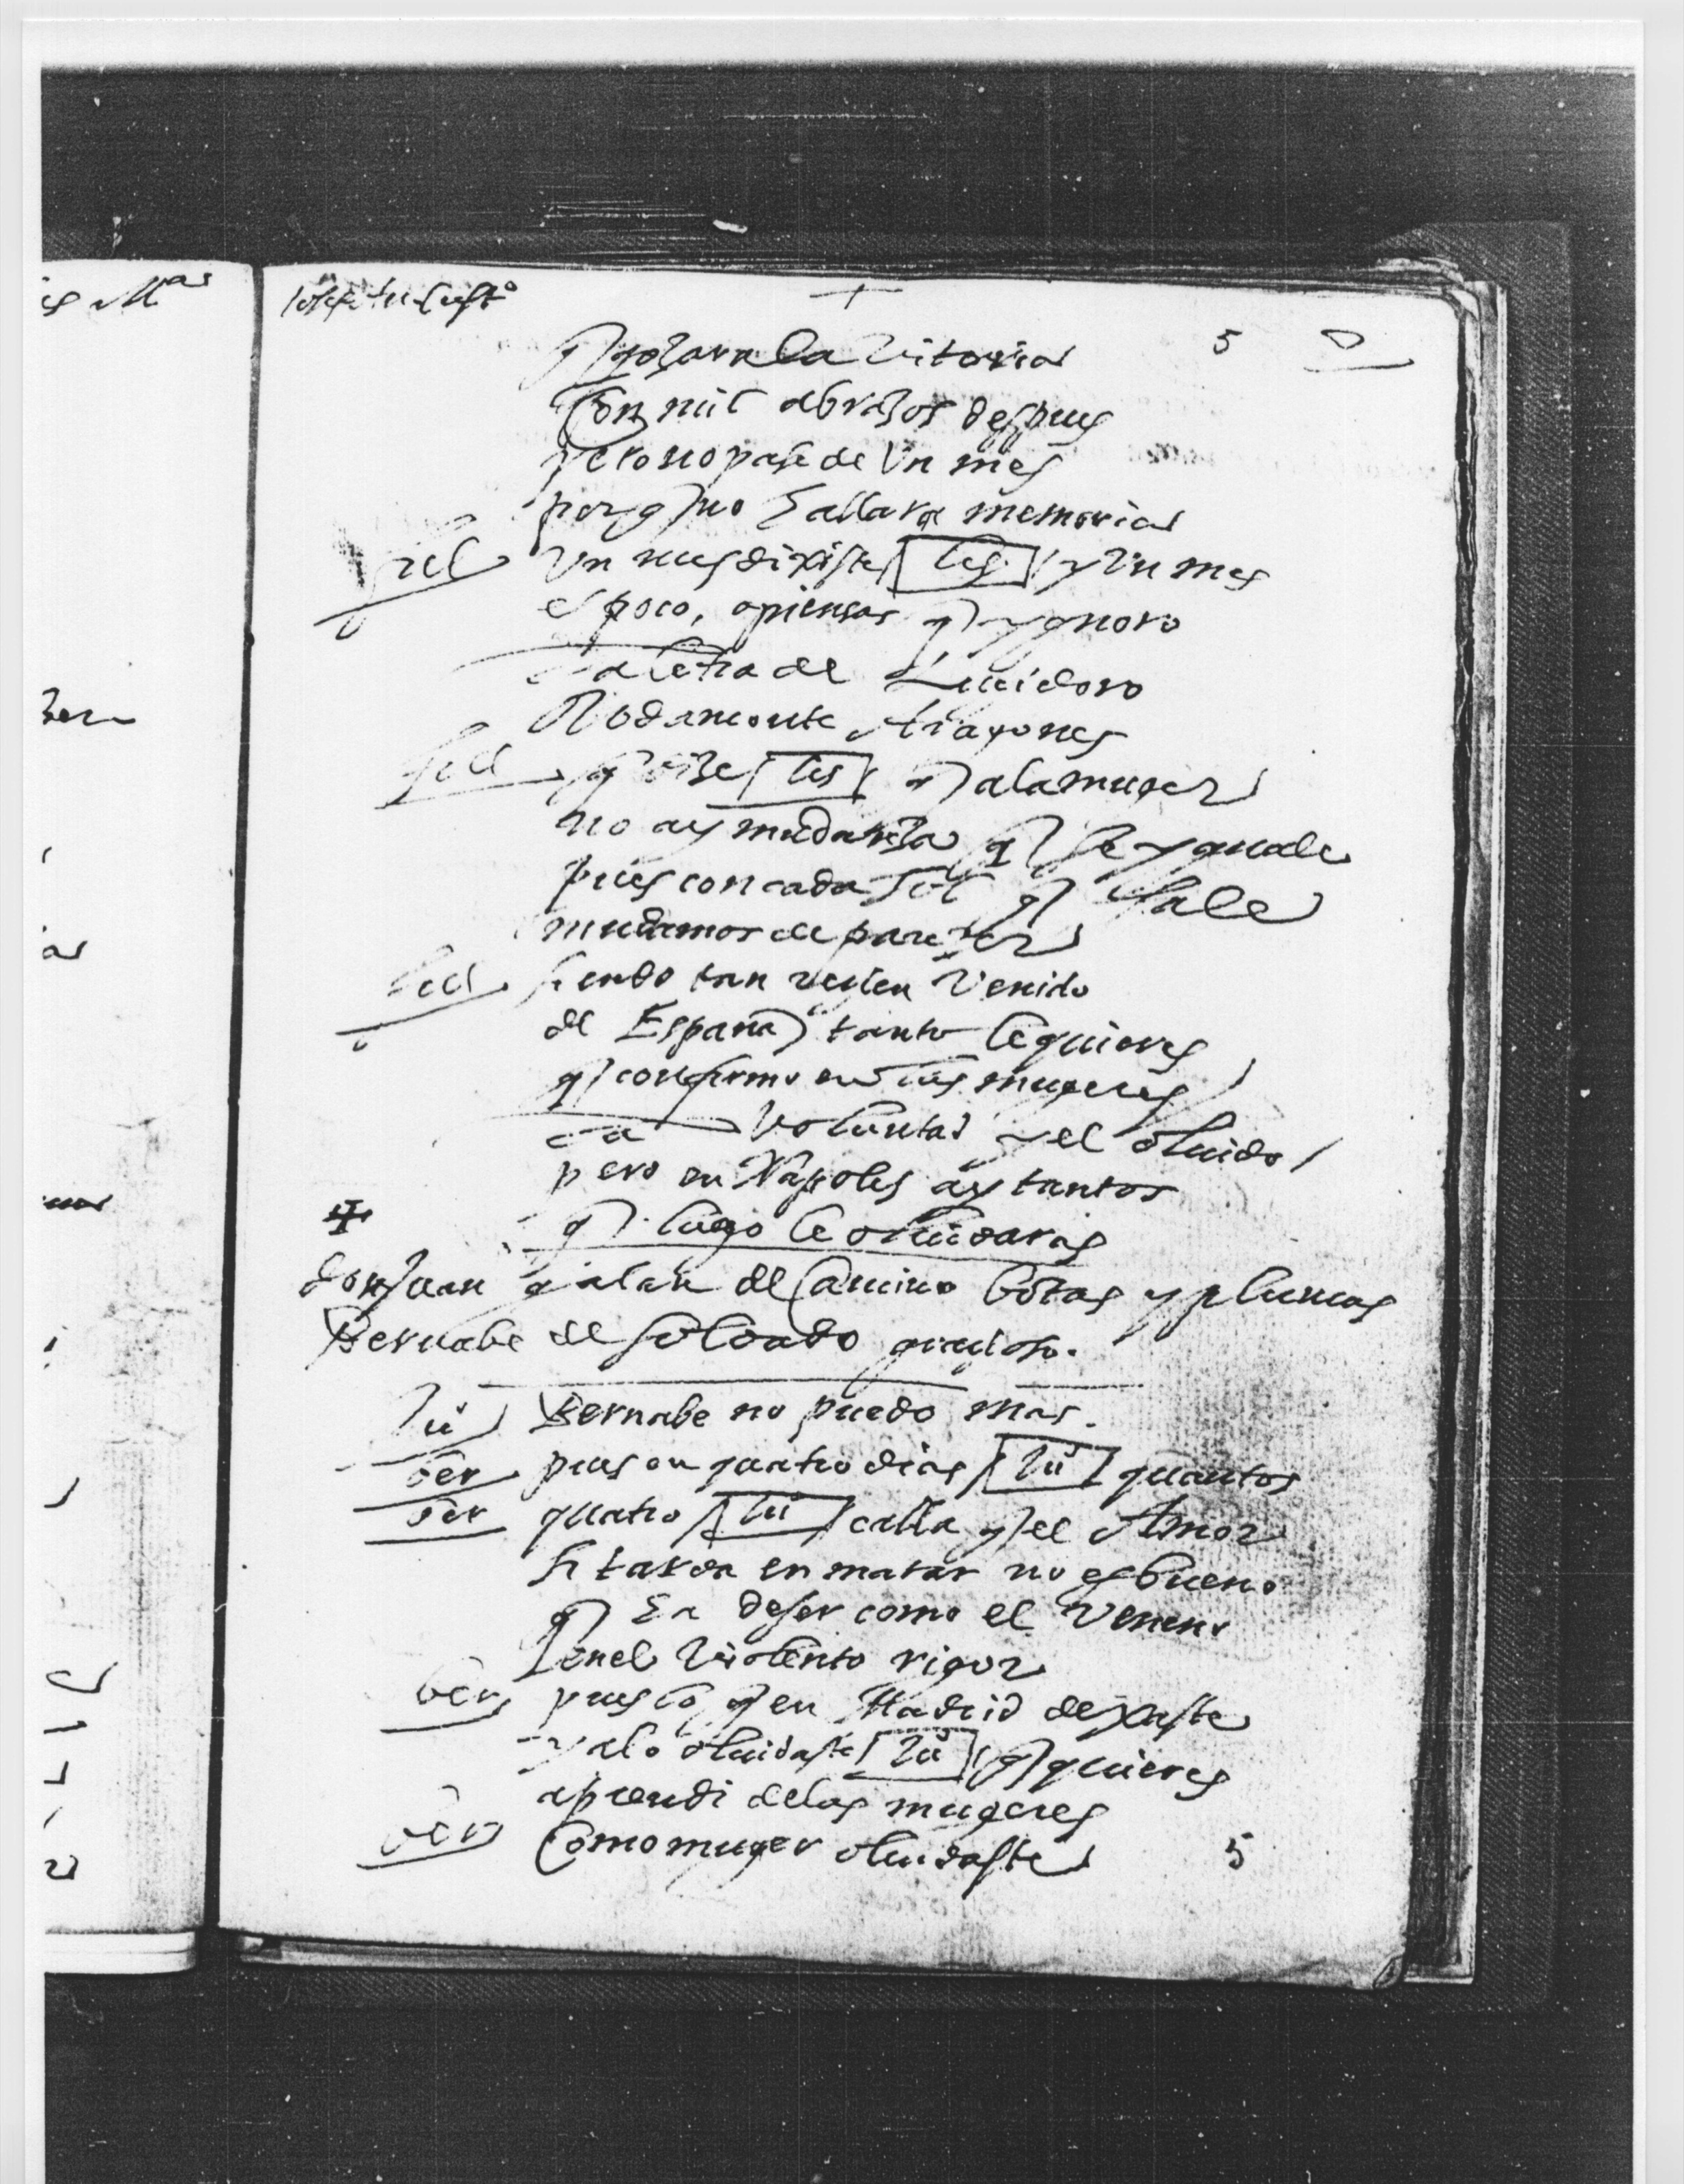 5
q gozara la vitoria
Con mil abrazos despues
pero no pase de Vn mes
porq no hallara memoria
Vn mes dixiste lis y Vn mes
es poco, o piensas q ygnoro
la letra de Lucidoro
Rodamonte Aragones
q dize lis q a la muger
no ay mudanza q se yguale
pues con cada sol q sale
mudamos de parezer
siendo tan rezien Venido
de España tanto le quieres
q confirmo en las mugeres
la Voluntad y el oluido
pero en Napoles ay tantos
q luego le oluidaras
don Juan galan de Camino botas y plumas
Bernabe de soldado grazioso.
Ju Bernabe no puedo mas.
ber pues en quatro dias Ju quantos
ber quatro Ju calla q el Amor
si tarda en matar no es bueno
q ha de ser como el Veneno
en el Violento rigor
ber pues lo q en Madrid dexaste
ya lo oluidaste Ju q quieres
aprendi de las mugeres
ber Como muger oluidaste
5